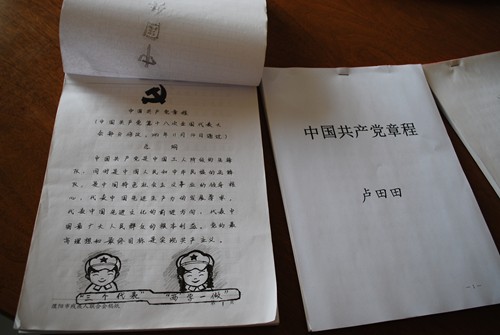 中国共产党章程
(中国共产党第十八次全国代表大
总纲
中国共产党是中国工人阶级的先锋
队，同时是中国人民和中华民族的先锋
队，是中国特色社会主义事业的领导核
心，代表中国先进生产力的发展要求，
代表中国先进文化的前进方向，代表中
国最广大人民群众的根本利益。党的最
高理想和最终目标是实现共产主义。
"三个代表"
"两学一做"
中国共产党章程
卢田田